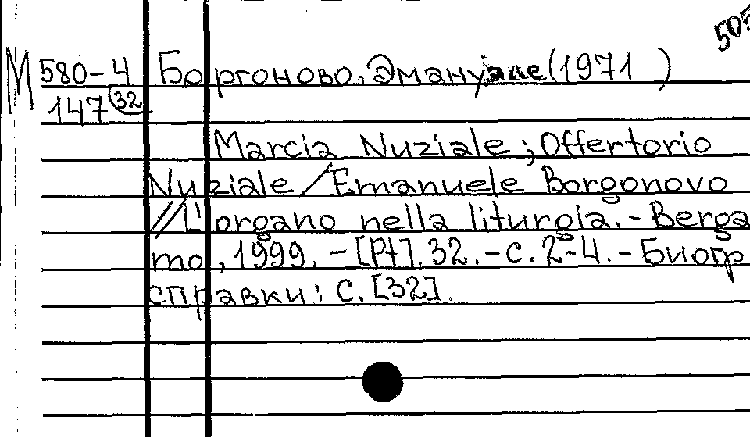 505
М 580-4 Боргоново, Эмануэле (1971 )
147 (32)
Marcia Nuziale ; Offertorio
Nuziale / Emanuele Borgonovo
// L'organo nella liturgia. - Berga
mo, 1999. - [Pt]. 32. - с. 2-4. - Биогр
справки: с. [32].